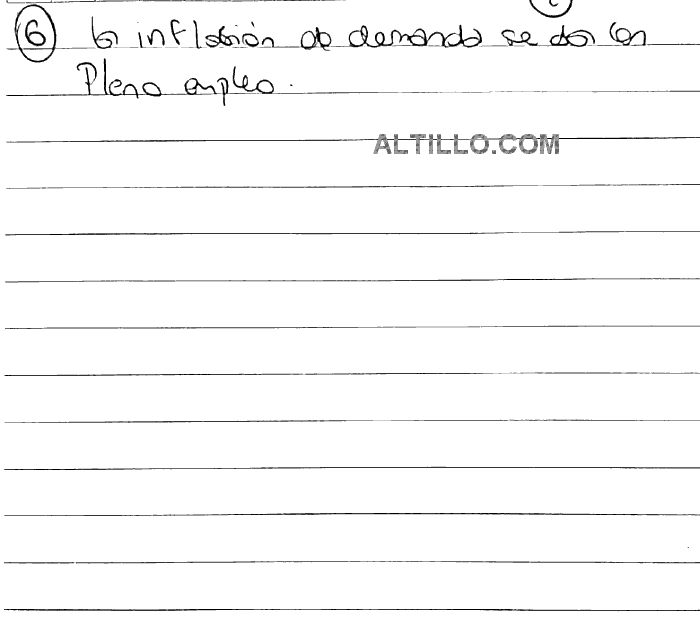 6 la inflación de demanda se da con
Pleno empleo.
ALTILLO.COM